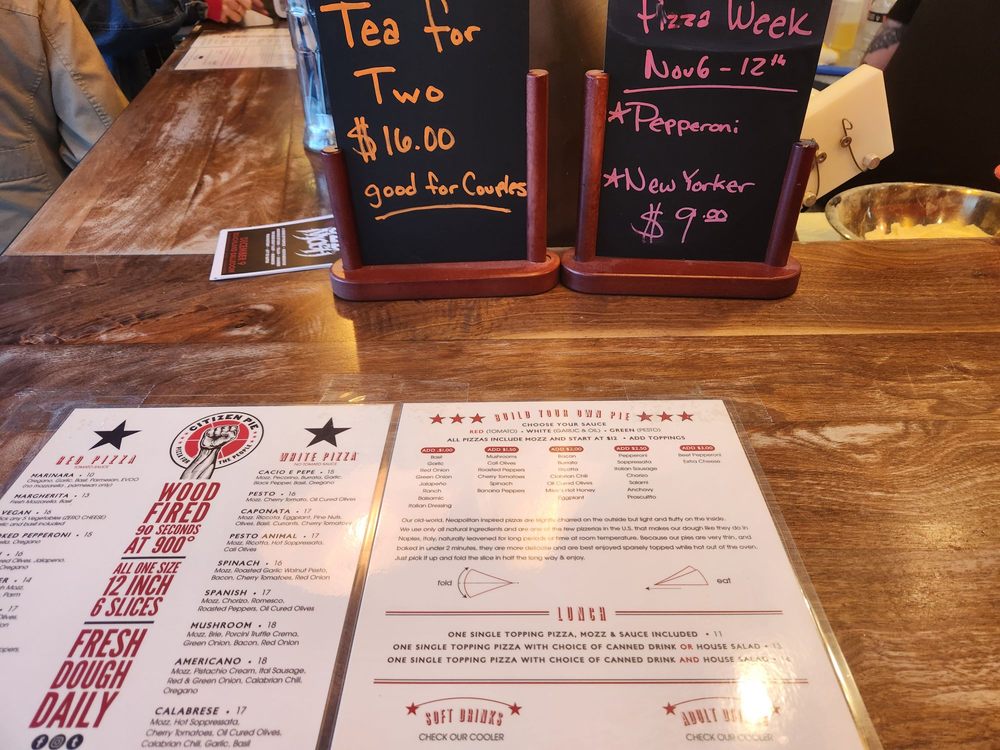 Tea for
Two
$16.00
good for Couples
Pizza Week
Nov 6 - 12th
★Pepperoni
★New Yorker
$9.00
DECEMBER 9
RED PIZZA
TOMATO SAUCE
MARINARA • 10
Oregano, Garlic, Basil, Parmesan, EVOO
(no mozzarella, parmesan only)
MARGHERITA • 13
Fresh Mozzarella, Basil
VEGAN • 16
5 Vegetables (ZERO CHEESE)
and basil included
PEPPERONI • 15
Oregano
Jalapeno,
• 14
Mozz,
Parm
• 17
CITIZEN PIE
PIZZA FOR THE PEOPLE
WOOD
FIRED
90 SECONDS
AT 900°
ALL ONE SIZE
12 INCH
6 SLICES
FRESH
DOUGH
DAILY
WHITE PIZZA
NO TOMATO SAUCE
CACIO E PEPE • 15
Mozz, Pecorino, Burrata, Garlic,
Black Pepper, Basil, Oregano
PESTO • 16
Mozz, Cherry Tomato, Oil Cured Olives
CAPONATA • 17
Mozz, Ricotta, Eggplant, Pine Nuts,
Olives, Basil, Currants, Cherry Tomatoes
PESTO ANIMAL • 17
Mozz, Ricotta, Hot Soppressata,
Cali Olives
SPINACH • 16
Mozz, Roasted Garlic Walnut Pesto,
Bacon, Cherry Tomatoes, Red Onion
SPANISH • 17
Mozz, Chorizo, Romesco,
Roasted Peppers, Oil Cured Olives
MUSHROOM • 18
Mozz, Brie, Porcini Truffle Crema,
Green Onion, Bacon, Red Onion
AMERICANO • 18
Mozz, Pistachio Cream, Ital Sausage,
Red & Green Onion, Calabrian Chili,
Oregano
CALABRESE • 17
Mozz, Hot Soppressata,
Cherry Tomatoes, Oil Cured Olives,
Calabrian Chili, Garlic, Basil
BUILD YOUR OWN PIE
CHOOSE YOUR SAUCE
RED (TOMATO) • WHITE (GARLIC & OIL) • GREEN (PESTO)
ALL PIZZAS INCLUDE MOZZ AND START AT $12 • ADD TOPPINGS
ADD .$1.00
Basil
Garlic
Red Onion
Green Onion
Jalapeno
Ranch
Balsamic
Italian Dressing
ADD $1.50
Mushrooms
Cali Olives
Roasted Peppers
Cherry Tomatoes
Spinach
Banana Peppers
ADD $2.00
Bacon
Burrata
Ricotta
Calabrian Chili
Oil Cured Olives
Mike's Hot Honey
Eggplant
ADD $2.50
Pepperoni
Soppressata
Italian Sausage
Chorizo
Salami
Anchovy
Prosciutto
ADD $3.00
Beef Pepperoni
Extra Cheese
Our old-world, Neapolitan inspired pizzas are lightly charred on the outside but light and fluffy on the inside.
We use only all natural ingredients and are one of the few pizzerias in the U.S. that makes our dough like they do in
Naples, Italy, naturally leavened for long periods of time at room temperature. Because our pies are very thin, and
baked in under 2 minutes, they are more delicate and are best enjoyed sparsely topped while hot out of the oven.
Just pick it up and fold the slice in half the long way & enjoy.
fold
eat
LUNCH
ONE SINGLE TOPPING PIZZA, MOZZ & SAUCE INCLUDED • 11
ONE SINGLE TOPPING PIZZA WITH CHOICE OF CANNED DRINK OR HOUSE SALAD • 13
ONE SINGLE TOPPING PIZZA WITH CHOICE OF CANNED DRINK AND HOUSE SALAD •
SOFT DRINKS
CHECK OUR COOLER
ADULT
CHECK OUR COOLER